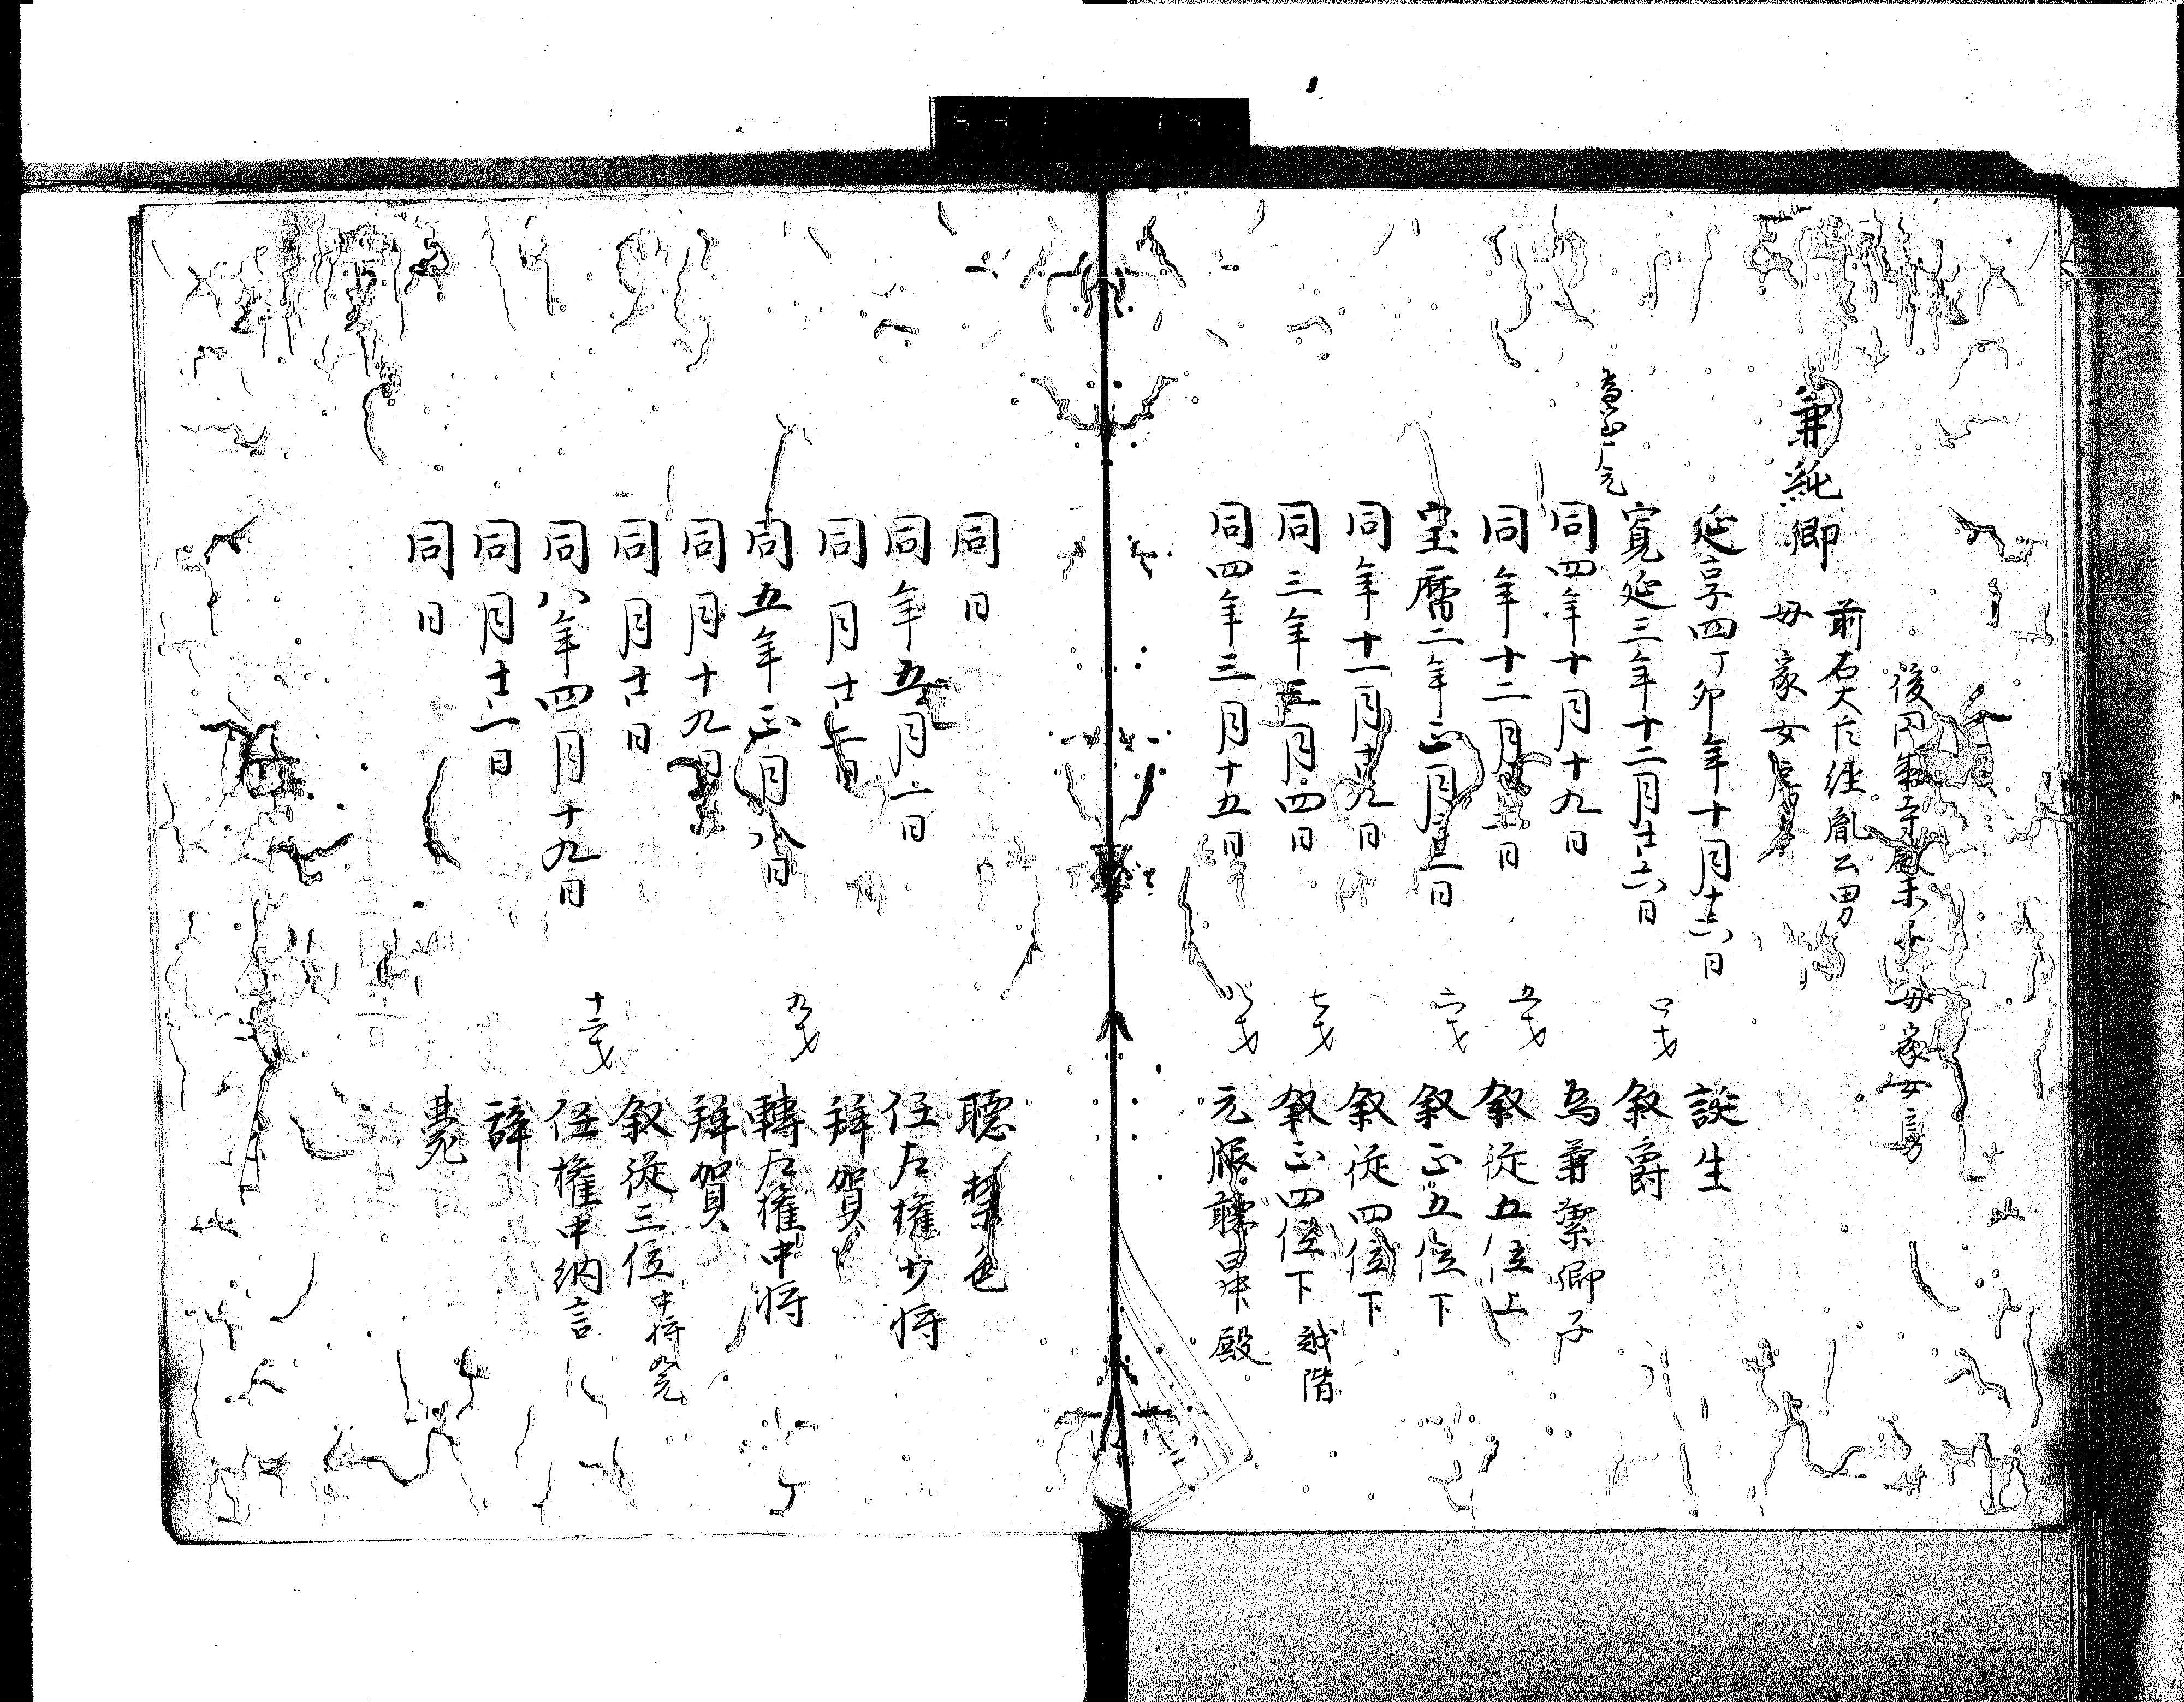 後円 寺 末子 母家女房
前右大臣経胤公男
兼純卿
母家女房
延享四丁卯年十月廿六日 誕生
寛延三年十二月廿六日 四才 叙爵
同四年十月十九日 為兼潔卿子
同年十二月 日 五才 叙従五位上
宝暦二年正月 日 六才 叙正五位下
同年十一月十九日 叙従四位下
同三年 月四日 七才 叙正四位下 越階
同四年三月十五日 八才 元服聴昇殿
同日 聴禁色
同年五月一日 任左権少将
同月 日 拝賀
同五年正月八日 九才 転左権中将
同月十九日 拝賀
同月廿日 叙従三位 中将如元
同八年四月十九日 十二才 任権中納言
同月廿二日 辞
同日 薨